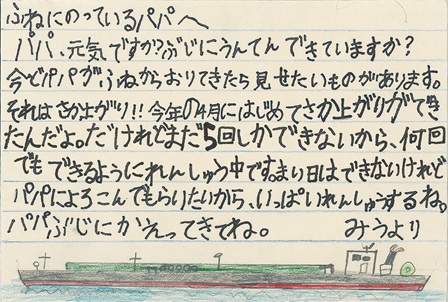 ふねにのっているパパへ
パパ、元気ですか?ぶじにうんてんできていますか?
今どパパがふねからおりてきたら見せたいものがあります。
それはさか上がり!!今年の4月にはじめてさか上がりができ
たんだよ。だけれどまだ5回しかできないから、何回
でもできるようにれんしゅう中です。まい日はできないけれど
パパによろこんでもらいたいから、いっぱいれんしゅうするね。
パパぶじにかえってきてね。 みうより